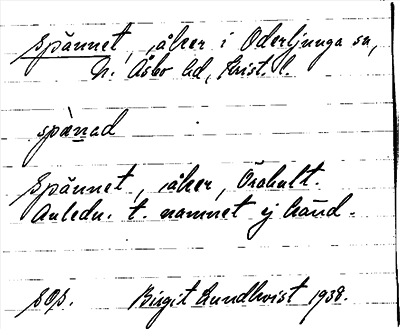 Spännet, åker i Oderljunga sn,
N. Åsbo hd, Krist. l.
spànad
Spännet, åker, Örahult.
Anledn. t. namnet ej känd.
sgs. Birgit Lundkvist 1938.